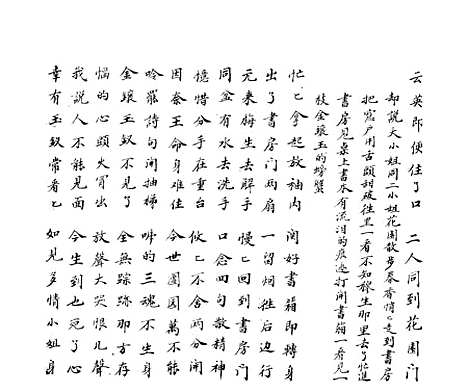 云英即便住了口　二人同到花園門
却說大小姐同二小姐花園散步春香悄匕走到書房
把窗戶用舌頭舔破徃里一看不知梅生那里去了恰進
書房見桌上書本有流泪的痕迹打開書箱一看見一
枝金琅玉的螃蟹
忙匕拿起放袖内　関好書箱即轉身
出了書房門兩扇　一留烟徃后边行
元来梅生去解手　慢匕回到書房門
同盆有水去洗手　口念四句散精神
憶惜分手在重台　攸匕不舍兩分開
因奈王命身难住　今世團圓萬不能
吟罷詩句開抽梯　唬的三魂不生身
金琅玉釵不見了　全無踪跡那方存
惱的心頭火冒出　放聲大哭恨几聲
我說人不能見面　今生到也死了心
幸有玉釵常看匕　如見多情小姐身